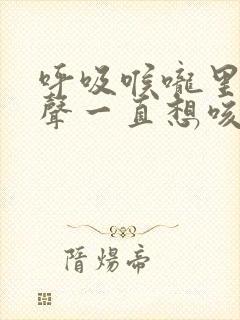 呼吸喉嚨里
聲一直想咳
隋煬帝